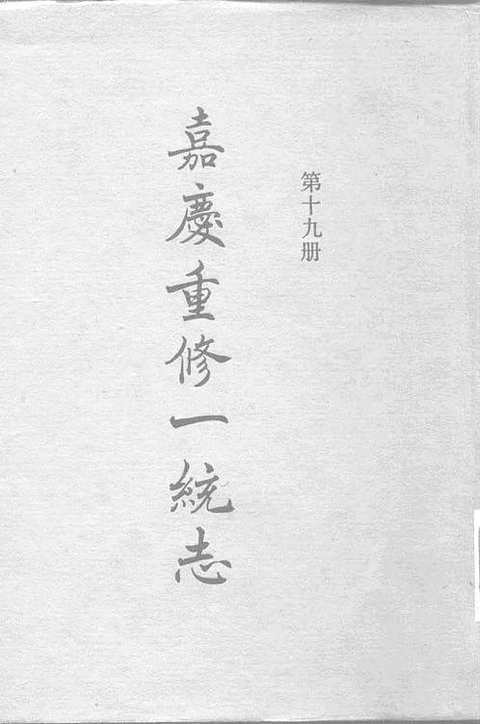 第十九册
嘉慶重修一統志